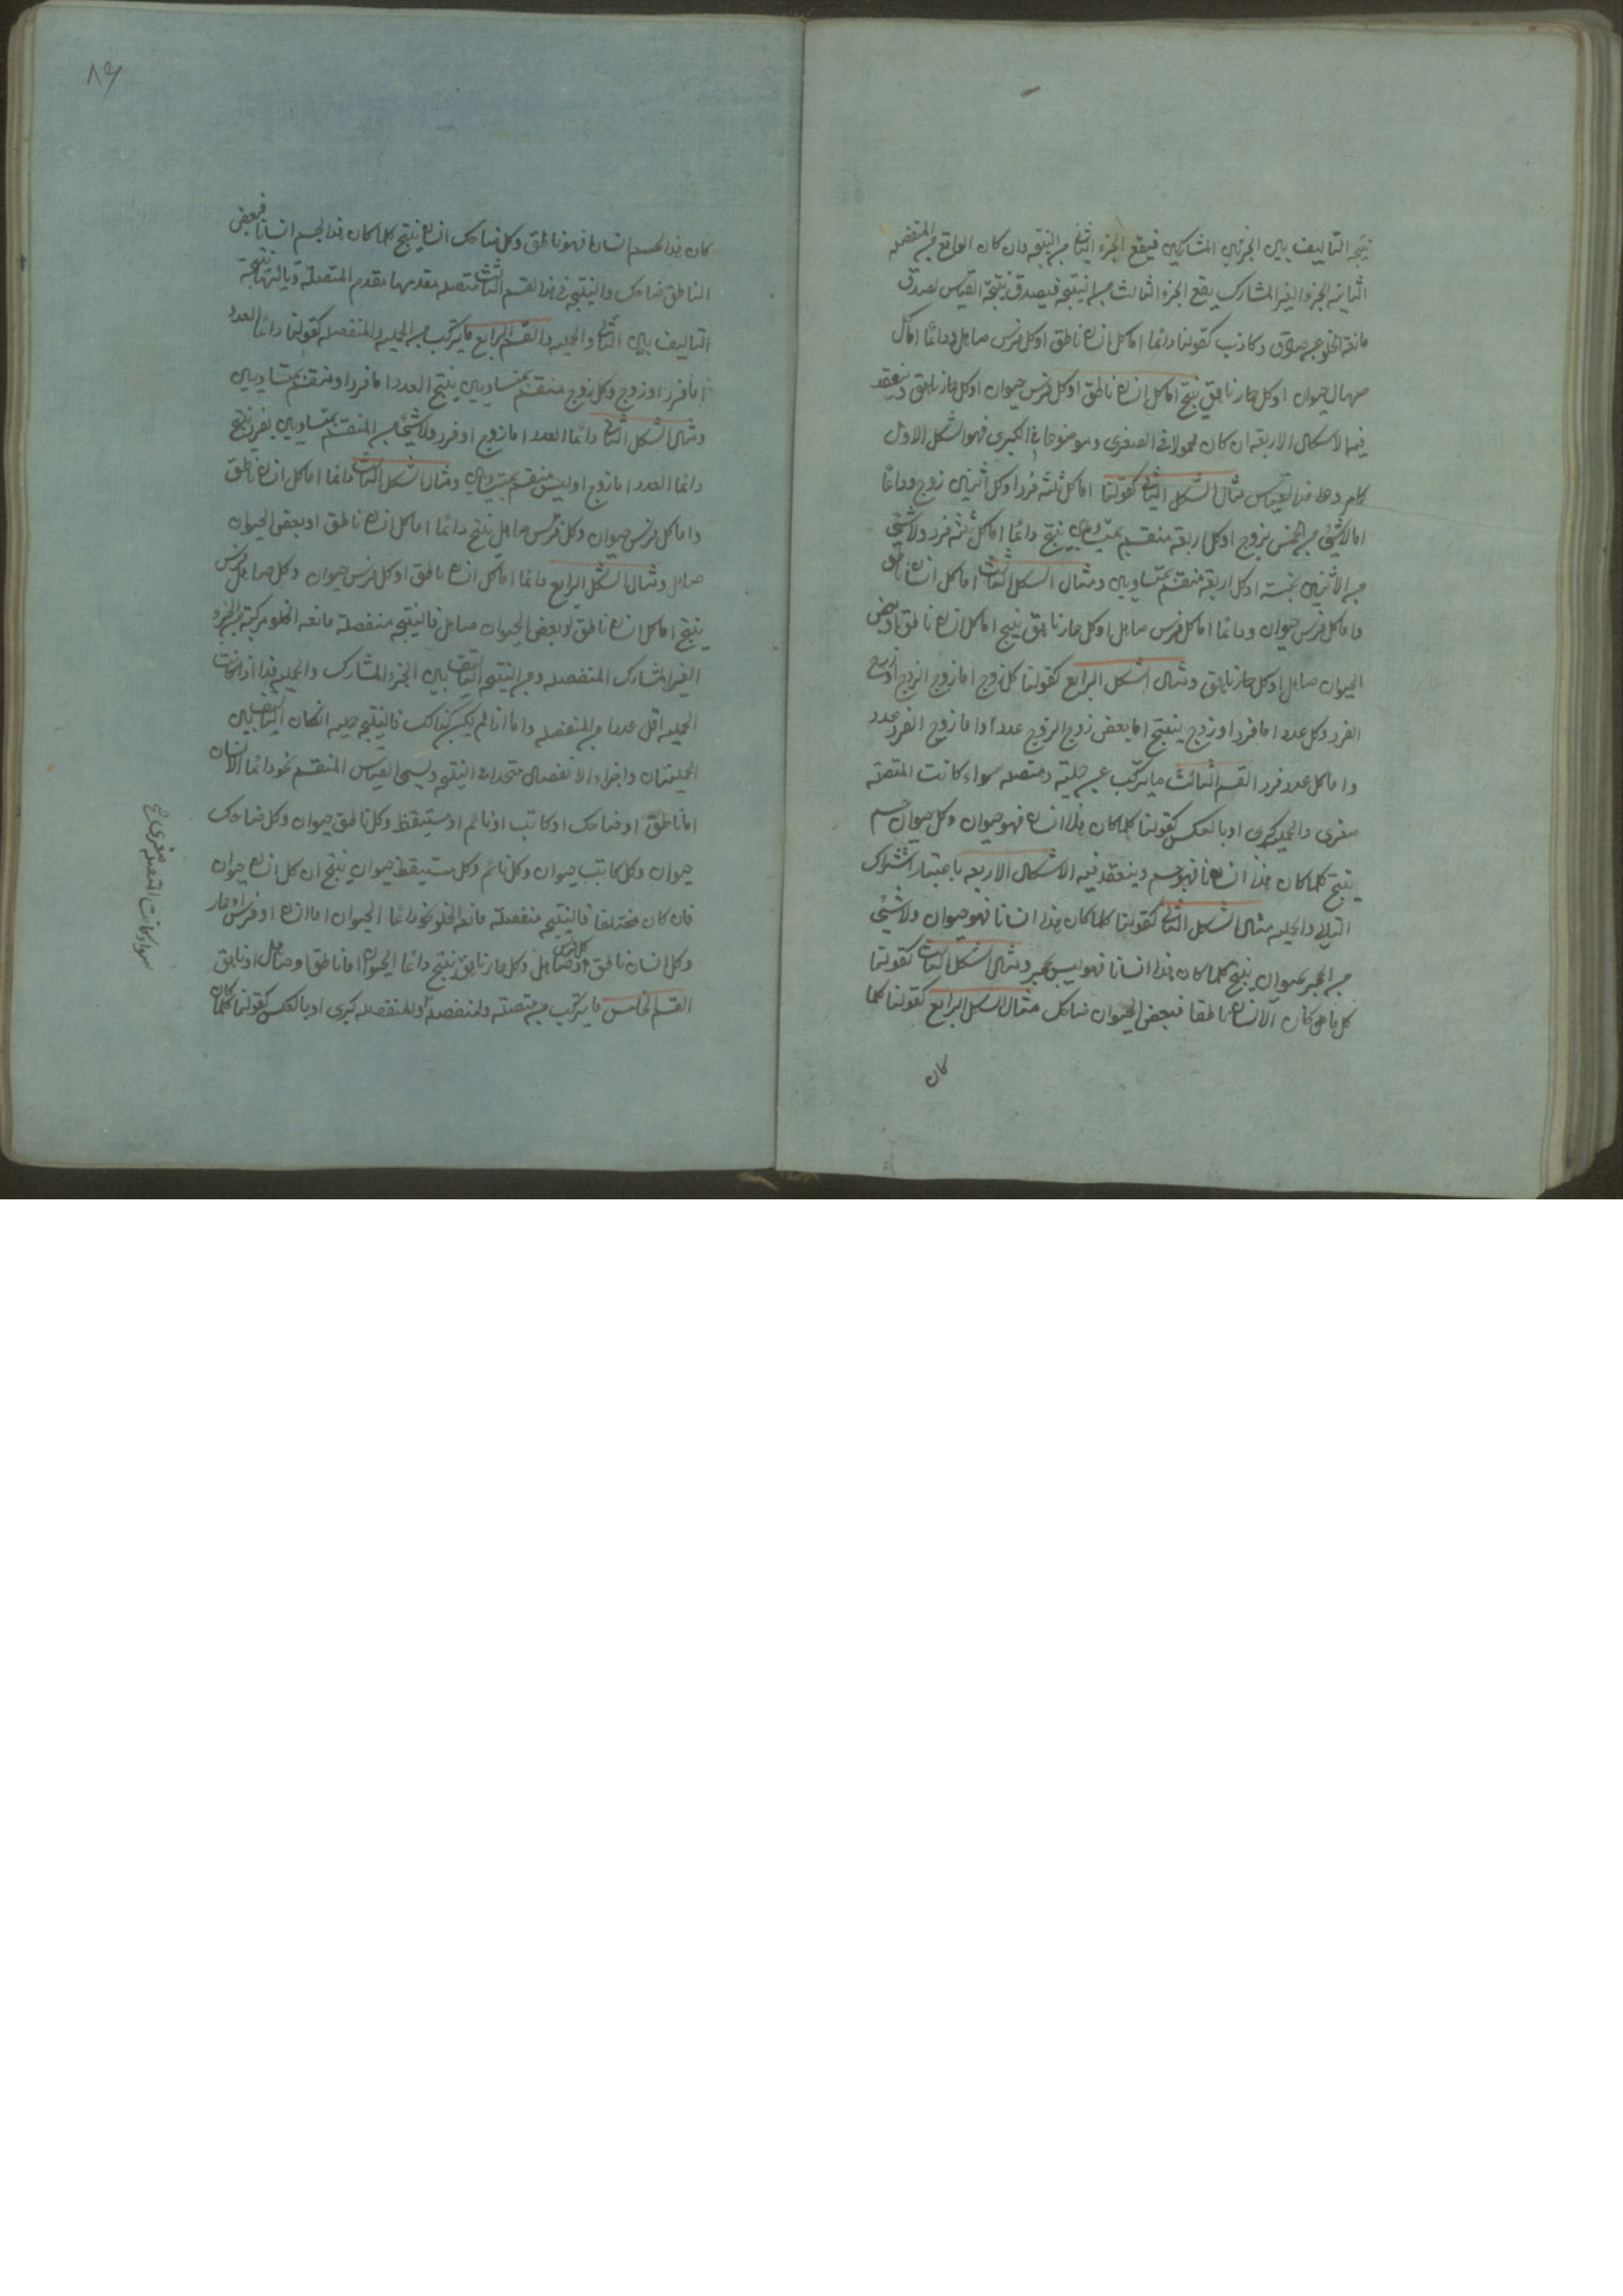 نتيجة التأليف بين الجزئين المشاركين فيقع الجزء الثاني من النتيجة وان كان الواقع من المنفصلة
الثانية الجزء الغير المشارك يقع الجزء الثالث من النتيجة فيصدق نتيجة القياس لصدق
مانعة الخلو عن صادق وكاذب كقولنا دائما اما كل انسان ناطق او كل فرس صاهل ودائما اما كل
صهال حيوان او كل حمار ناهق ينتج اما كل انسان ناطق او كل فرس حيوان او كل حمار ناهق وينعقد
فيها الاشكال الاربعة ان كان محمولا في الصغرى وموضوعا في الكبرى فهو الشكل الاول
كامر وهذا القياس مثال الشكل الثاني كقولنا اما كل ثلثة فرد او كل اثنين زوج ودائما
اما لا شيء من الخمس بزوج او كل اربعة منقسم بمتساويين ينتج دائما اما كل ثلثة فرد ولا شيء
من الاثنين بخمسة او كل اربعة منقسم بمتساويين ومثال الشكل الثالث اما كل انسان ناطق
واما كل فرس حيوان ودائما اما كل فرس صاهل او كل حمار ناهق ينتج اما كل انسان ناطق او بعض
الحيوان صاهل او كل حمار ناهق ومثال الشكل الرابع كقولنا كل زوج اما زوج الزوج او زوج
الفرد وكل عدد اما فرد او زوج ينتج اما بعض زوج الزوج عددا واما زوج الفرد عدد
واما كل عدد فرد القسم الثالث ما يتركب عن حملية ومتصلة سواء كانت المتصلة
صغرى والحملية كبرى او بالعكس كقولنا كلما كان هذا انسان فهو حيوان وكل حيوان جسم
ينتج كلما كان هذا انسانا فهو جسم وينعقد فيه الاشكال الاربعة باعتبار اشتراك
التالي والحملية مثال الشكل الثاني كقولنا كلما كان هذا انسانا فهو حيوان ولا شيء
من الحجر بحيوان ينتج كلما كان هذا انسانا فهو ليس بحجر ومثال الشكل الثالث كقولنا
كان الانسان ناطقا فبعض الحيوان ضاحك مثال الشكل الرابع كقولنا كلما
كان
٨٩
كان هذا الجسم انسانا فهو ناطق وكل ضاحك انسان ينتج كلما كان هذا الجسم انسانا فبعض
الناطق ضاحك والنتيجة في هذا القسم الثالث متصلة مقدمها مقدم المتصلة وتاليها نتيجة
التأليف بين التالي والحملية والقسم الرابع ما يتركب من الحملية والمنفصلة كقولنا دائما العدد
اما فرد او زوج وكل زوج منقسم بمتساويين ينتج العدد اما فرد او منقسم بمتساويين
ومثال الشكل الثاني دائما العدد اما زوج او فرد ولا شيء من المنقسم بمتساويين بفرد ينتج
دائما العدد اما زوج او ليس منقسم بمتساويين ومثال الشكل الثالث دائما اما كل انسان ناطق
واما كل فرس حيوان وكل فرس صاهل ينتج دائما اما كل انسان ناطق او بعض الحيوان
صاهل ومثال الشكل الرابع دائما اما كل انسان ناطق او كل فرس حيوان وكل صاهل فرس
ينتج اما كل انسان ناطق او بعض الحيوان صاهل فالنتيجة منفصلة مانعة الخلو مركبة من الجزء
الغير المشارك المنفصلة ومن النتيجة التأليف بين الجزء المشارك والحملية هذا اذا كانت
الحملية اقل عددا من المنفصلة واما اذا لم يكن كذلك فالنتيجة حملية ان كان التأليف بين
الحمليتان واجزاء الانفصال متحدات النتيجة ويسمى القياس المنقسم نحو دائما الانسان
اما ناطق او ضاحك او كاتب او نائم او مستيقظ وكل ناطق حيوان وكل ضاحك
حيوان وكل كاتب حيوان وكل نائم وكل مستيقظ حيوان ينتج ان كل انسان حيوان
فان كان مختلفا فالنتيجة منفصلة مانعة الخلو نحو دائما الحيوان اما انسان او فرس او حمار
وكل انسان ناطق وكل فرس صاهل وكل حمار ناهق ينتج دائما الحيوان اما ناطق او صاهل او ناهق
القسم الخامس ما يتركب من متصلة ومنفصلة والمنفصلة كبرى او بالعكس كقولنا كلما كان
سواء كانت المتصلة صغرى